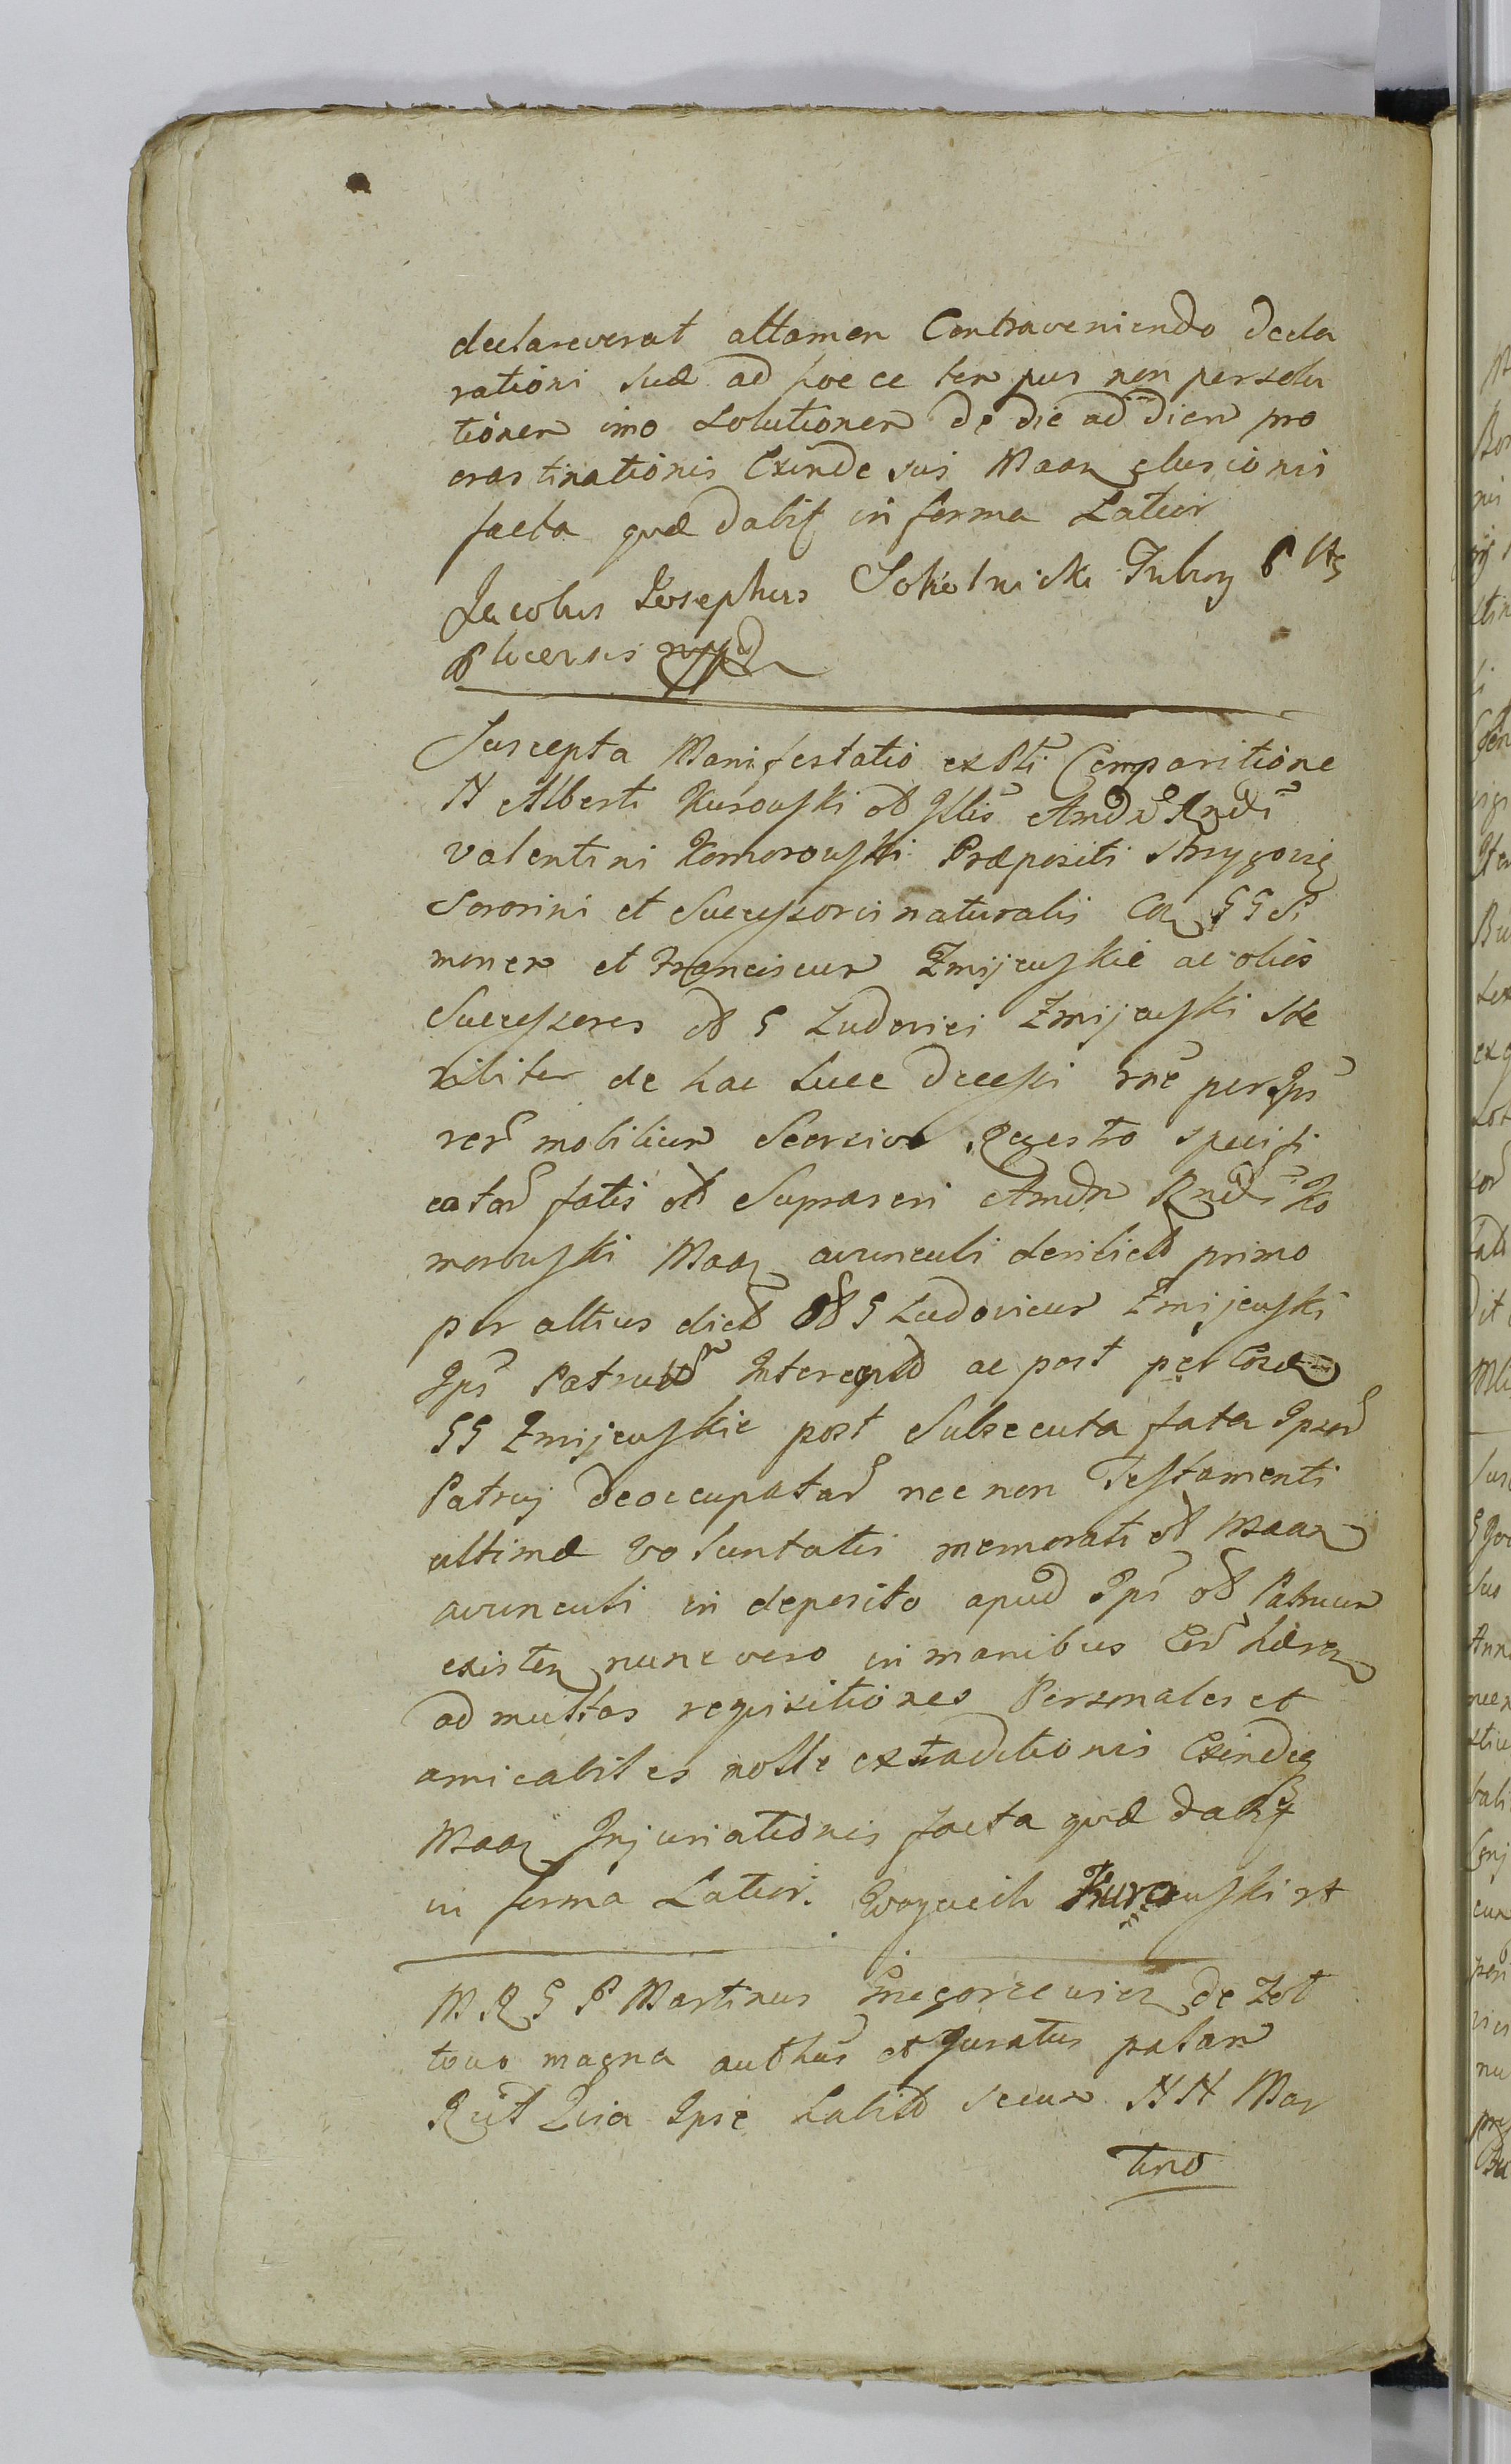 declareverat attamen Contraveniendo decla
rationi suæ ad hocce tempus non persolu
tionem imo Solutionem de die ad diem pro
crastinationis Exinde sui Maan elusionis
facta quæ dabit in forma Latior
Jacobus Josephus Sokolnicki
Plocensis mppd
Suscepta Manifestatio ex Pti Comparitione
N Alberti Kurowski ol Illis Amdū Rndi
Valentini Komorowski Præpositi Strzygoviē
Sororini et Successoris naturalis Con GG Si
monem et Franciscum Zmijewskie ac olies
Successores ol G Ludovici Zmijewski Ste
riliter de hac Luce decessi rne per Ips
rer mobilium Seorsivo Regestro specifi
catar fatis ol Suprascri Amdn Rndi Ko
morowski Maan avunculi derelict primo
per altius dict ol G Ludovicum Zmijewski
Ips Patruum ac post per Eosdem
GG Zmijewskie post Subsecuta fata Ipsor
Patruj deoccupatar nec non Testamenti
ultimæ voluntatis memorati ol Maan
avunculi in deposito apud Ips ol Patruum
existen nunc vero in manibus Eor hæren
ad multas requisitiones Personales et
amicabiles nolle extraditionis Exindeq
Maan Injuriationis facta quæ dabit
in forma Latior. Woyciech Kurowski rt
M R G P Martinus Gregorzewicz de Zot
towo magna authūs et Juratus palam
Rcit Quia Ipse habitd secum NN Mar
tino